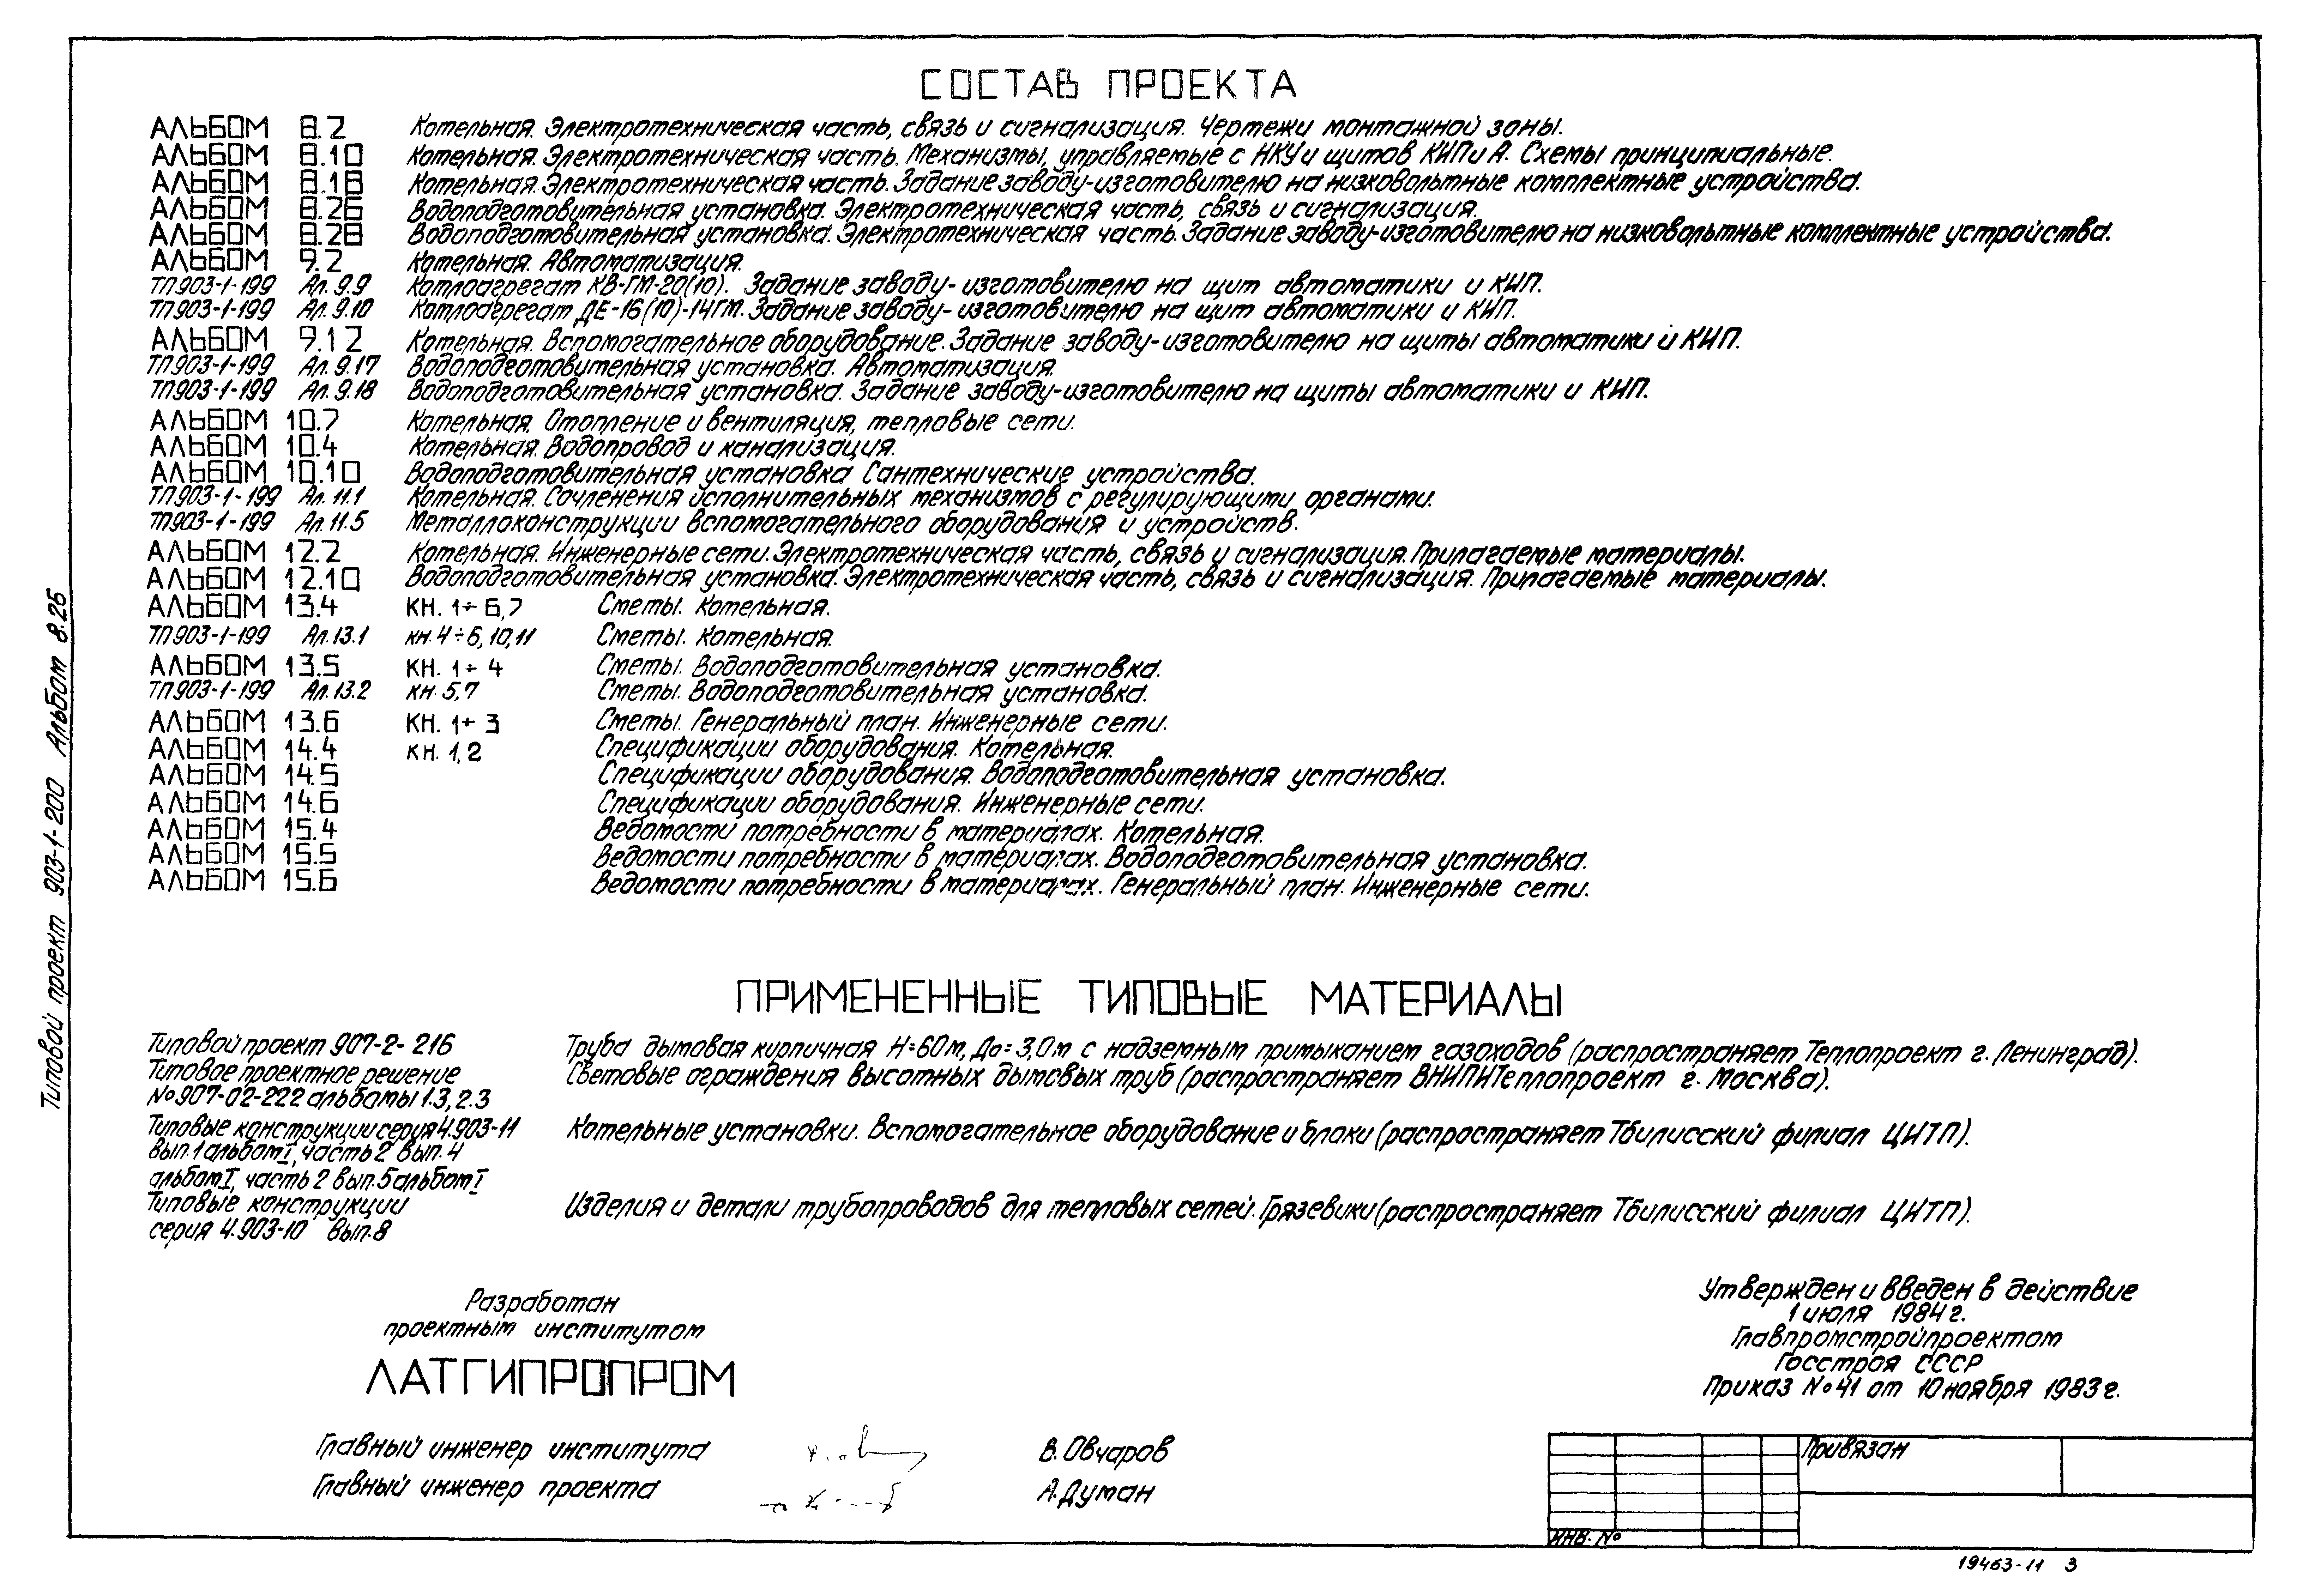 СОСТАВ ПРОЕКТА
АЛЬБОМ 8.2 Котельная. Электротехническая часть, связь и сигнализация. Чертежи монтажной зоны.
АЛЬБОМ 8.10 Котельная. Электротехническая часть. Механизмы, управляемые с НКУ и щитов КИП и А. Схемы принципиальные.
АЛЬБОМ 8.18 Котельная. Электротехническая часть. Задание заводу-изготовителю на низковольтные комплектные устройства.
АЛЬБОМ 8.26 Водоподготовительная установка. Электротехническая часть, связь и сигнализация.
АЛЬБОМ 8.28 Водоподготовительная установка. Электротехническая часть. Задание заводу-изготовителю на низковольтные комплектные устройства.
АЛЬБОМ 9.2 Котельная. Автоматизация.
ТП903-1-199 Ал. 9.9 Котлоагрегат КВ-ГМ-20(10). Задание заводу-изготовителю на щит автоматики и КИП.
ТП903-1-199 Ал. 9.10 Котлоагрегат ДЕ-16(10)-14ГМ. Задание заводу-изготовителю на щит автоматики и КИП.
АЛЬБОМ 9.12 Котельная. Вспомогательное оборудование. Задание заводу-изготовителю на щиты автоматики и КИП.
ТП903-1-199 Ал. 9.17 Водоподготовительная установка. Автоматизация.
ТП903-1-199 Ал. 9.18 Водоподготовительная установка. Задание заводу-изготовителю на щиты автоматики и КИП.
АЛЬБОМ 10.7 Котельная. Отопление и вентиляция, тепловые сети.
АЛЬБОМ 10.4 Котельная. Водопровод и канализация.
АЛЬБОМ 10.10 Водоподготовительная установка Сантехнические устройства.
ТП903-1-199 Ал. 11.1 Котельная. Сочленения исполнительных механизмов с регулирующими органами.
ТП903-1-199 Ал. 11.5 Металлоконструкции вспомогательного оборудования и устройств.
АЛЬБОМ 12.2 Котельная. Инженерные сети. Электротехническая часть, связь и сигнализация. Прилагаемые материалы.
АЛЬБОМ 12.10 Водоподготовительная установка. Электротехническая часть, связь и сигнализация. Прилагаемые материалы.
АЛЬБОМ 13.4 КН. 1÷6,7 Сметы. Котельная.
ТП903-1-199 Ал. 13.1 кн. 4÷6,10,11 Сметы. Котельная.
АЛЬБОМ 13.5 КН. 1÷4 Сметы. Водоподготовительная установка.
ТП903-1-199 Ал. 13.2 кн. 5,7 Сметы. Водоподготовительная установка.
АЛЬБОМ 13.6 КН. 1÷3 Сметы. Генеральный план. Инженерные сети.
АЛЬБОМ 14.4 КН. 1,2 Спецификации оборудования. Котельная.
АЛЬБОМ 14.5 Спецификации оборудования. Водоподготовительная установка.
АЛЬБОМ 14.6 Спецификации оборудования. Инженерные сети.
АЛЬБОМ 15.4 Ведомости потребности в материалах. Котельная.
АЛЬБОМ 15.5 Ведомости потребности в материалах. Водоподготовительная установка.
АЛЬБОМ 15.6 Ведомости потребности в материалах. Генеральный план. Инженерные сети.
Типовой проект 903-1-200 Альбом 8.26
ПРИМЕНЕННЫЕ ТИПОВЫЕ МАТЕРИАЛЫ
Типовой проект 907-2-216 Труба дымовая кирпичная Н=60м, До=3,0м с надземным примыканием газоходов (распространяет Теплопроект г. Ленинград).
Типовое проектное решение Световые ограждения высотных дымовых труб (распространяет ВНИПИТеплопроект г. Москва).
№907-02-222 альбомы 1.3, 2.3
Типовые конструкции серия 4.903-11 Котельные установки. Вспомогательное оборудование и блоки (распространяет Тбилисский филиал ЦИТП).
вып. 1 альбом I, часть 2 вып. 4
альбом I, часть 2 вып. 5 альбом I
Типовые конструкции Изделия и детали трубопроводов для тепловых сетей. Грязевики (распространяет Тбилисский филиал ЦИТП).
серия 4.903-10 вып. 8
Разработан
проектным институтом
ЛАТГИПРОПРОМ
Утвержден и введен в действие
1 июля 1984 г.
Главпромстройпроектом
Госстроя СССР
Приказ №41 от 10 ноября 1983 г.
Главный инженер института В. Овчаров
Главный инженер проекта А. Думан
Привязан
ИНВ. №
19463-11 3